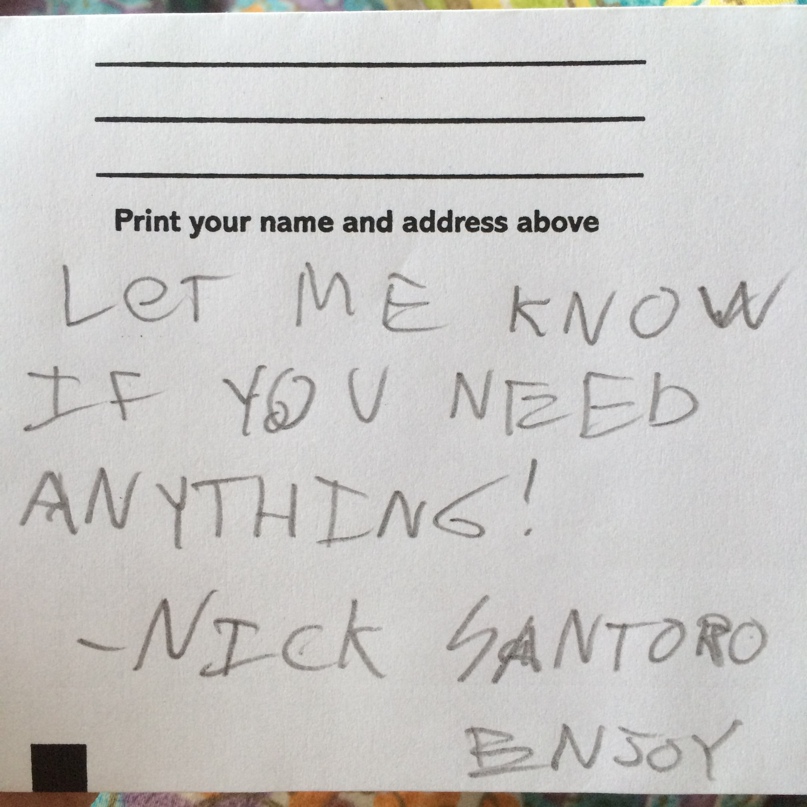 Print your name and address above
LeT ME KNOW
IF YOU NEED
ANYTHING!
-NICK SANTORO
ENJOY